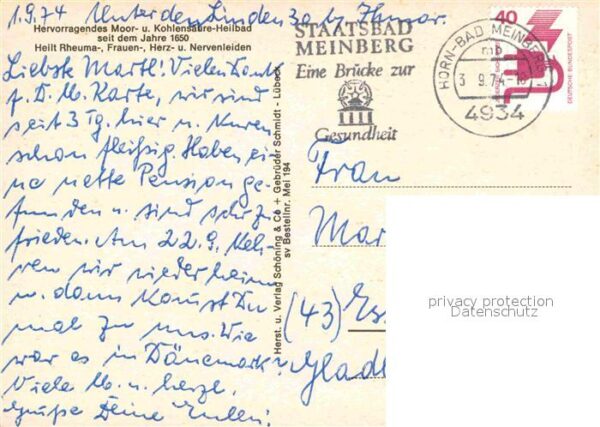 1.9.74 Unter den Linden 30 b.
Hervorragendes Moor- u. Kohlensäure-Heilbad
seit dem Jahre 1650
Heilt Rheuma-, Frauen-, Herz- u. Nervenleiden
Liebste Martl! Vielen Dank
f. D. lb. Karte, wir sind
seit 3 Tg. hier u. kuren
schon fleißig. Haben ei
ne nette Pension ge
funden u. sind sehr zu
frieden. Am 22.9. keh
ren wir wieder heim
u. dann kommst Du
mal zu uns. Wie
war es in Dänemark?
Viele lb. u. herzl.
Grüße Deine
Herst. u. Verlag Schöning & Co + Gebrüder Schmidt - Lübeck
sv Bestellnr. Mei 194
STAATSBAD
MEINBERG
Eine Brücke zur
Gesundheit
HORN-BAD MEINBERG 1
mb
3.9.74-18
4934
40
DEUTSCHE BUNDESPOST
Frau
Mar
(43) Es
Glad
privacy protection
Datenschutz